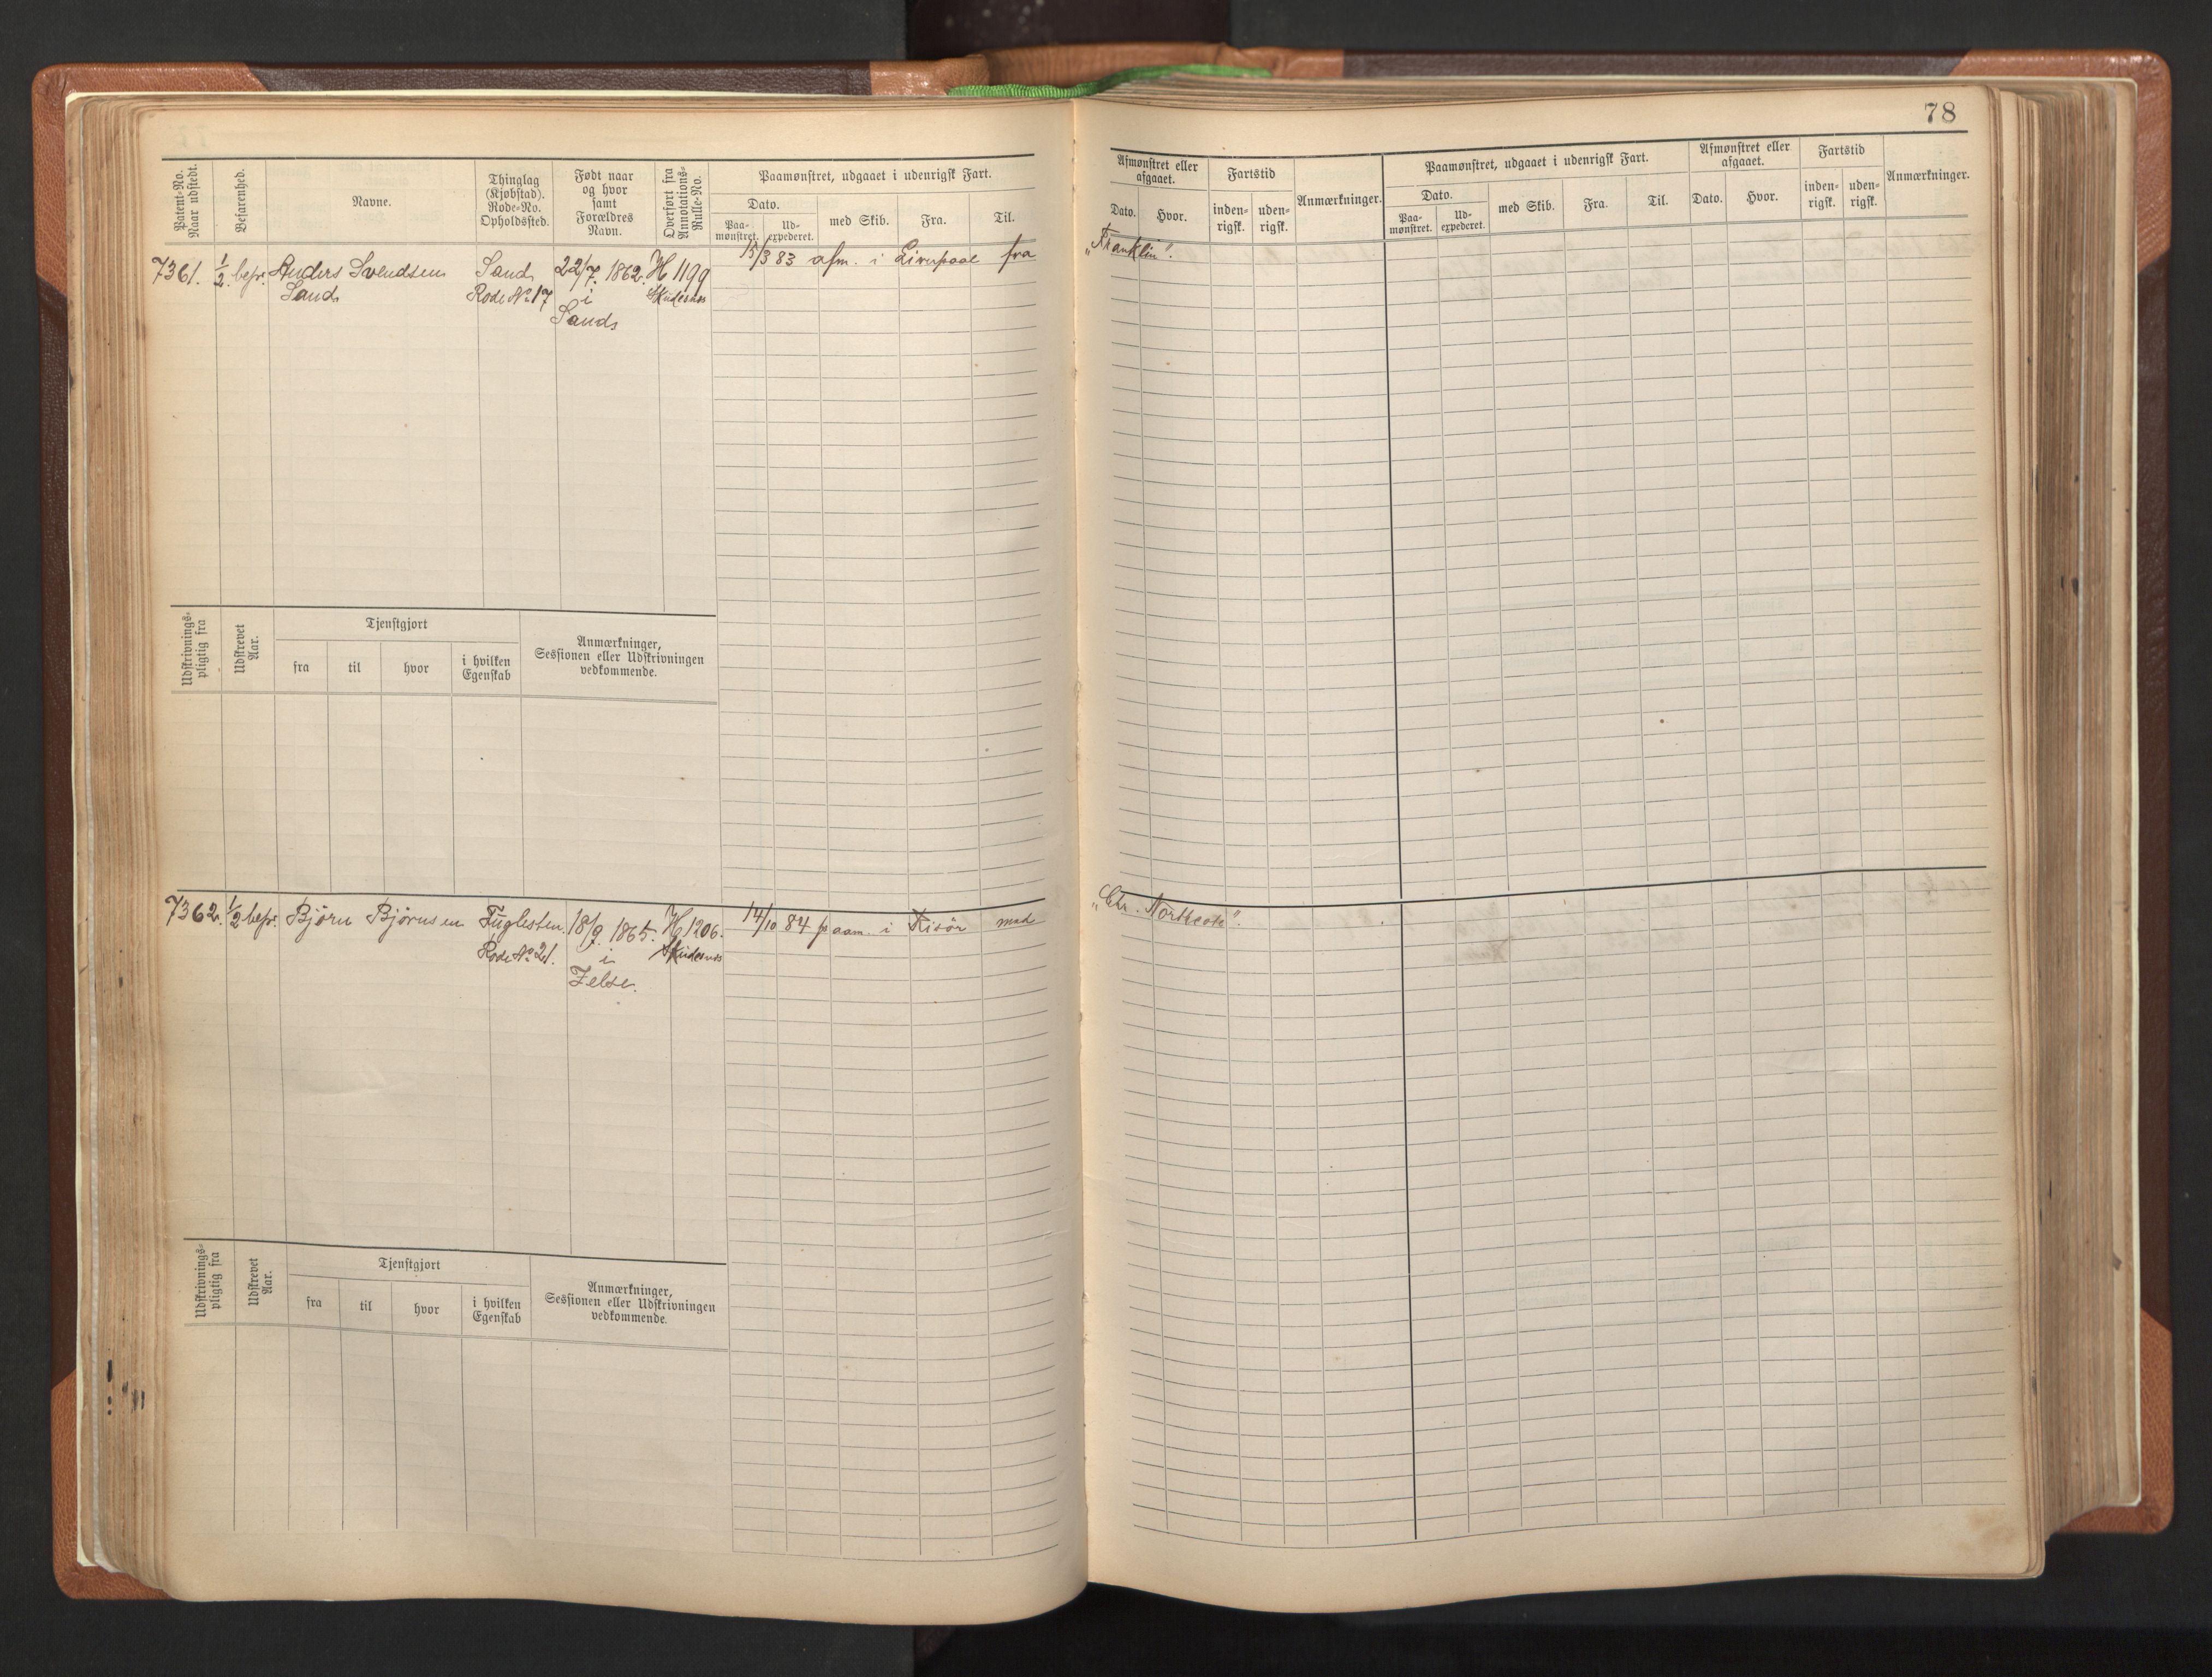 78
Patent-No. Naar udstedt.
Befarenhed.
Navne.
Thinglag (Kjøbstad). Rode-No. Opholdssted.
Født naar og hvor samt Forældres Navn.
Overført fra Annotations-Rulle-No.
Paamønstret, udgaaet i udenrigsk Fart.
Dato.
Paa-mønstret.
Ud-expederet.
med Skib.
Fra.
Til.
Afmønstret eller afgaaet.
Dato.
Hvor.
Fartstid
inden-rigsk.
uden-rigsk.
Anmærkninger.
Paamønstret, udgaaet i udenrigsk Fart.
Dato.
Paa-mønstret.
Ud-expederet.
med Skib.
Fra.
Til.
Afmønstret eller afgaaet.
Dato.
Hvor.
Fartstid
inden-rigsk.
uden-rigsk.
Anmærkninger.
7361. 1/2 befr. Anders Svendsen Sand 22/7. 1862. H 1199 15/3 83 afm. i Liverpool fra „Franklin“.
Sand Rode No 17 i Skudesnes
Sands
Udskrivnings-pligtig fra
Udskrevet Aar.
Tjenstgjort
fra
til
hvor
i hvilken Egenskab
Anmærkninger, Sessionen eller Udskrivningen vedkommende.
7362. 1/2 befr. Bjørn Bjørnsen Fuglesten. 18/9. 1865. H 1206. 14/10 84 paam. i Risör med
Rode No 21. i Skudesnes
Udskrivnings-pligtig fra
Udskrevet Aar.
Tjenstgjort
fra
til
hvor
i hvilken Egenskab
Anmærkninger, Sessionen eller Udskrivningen vedkommende.